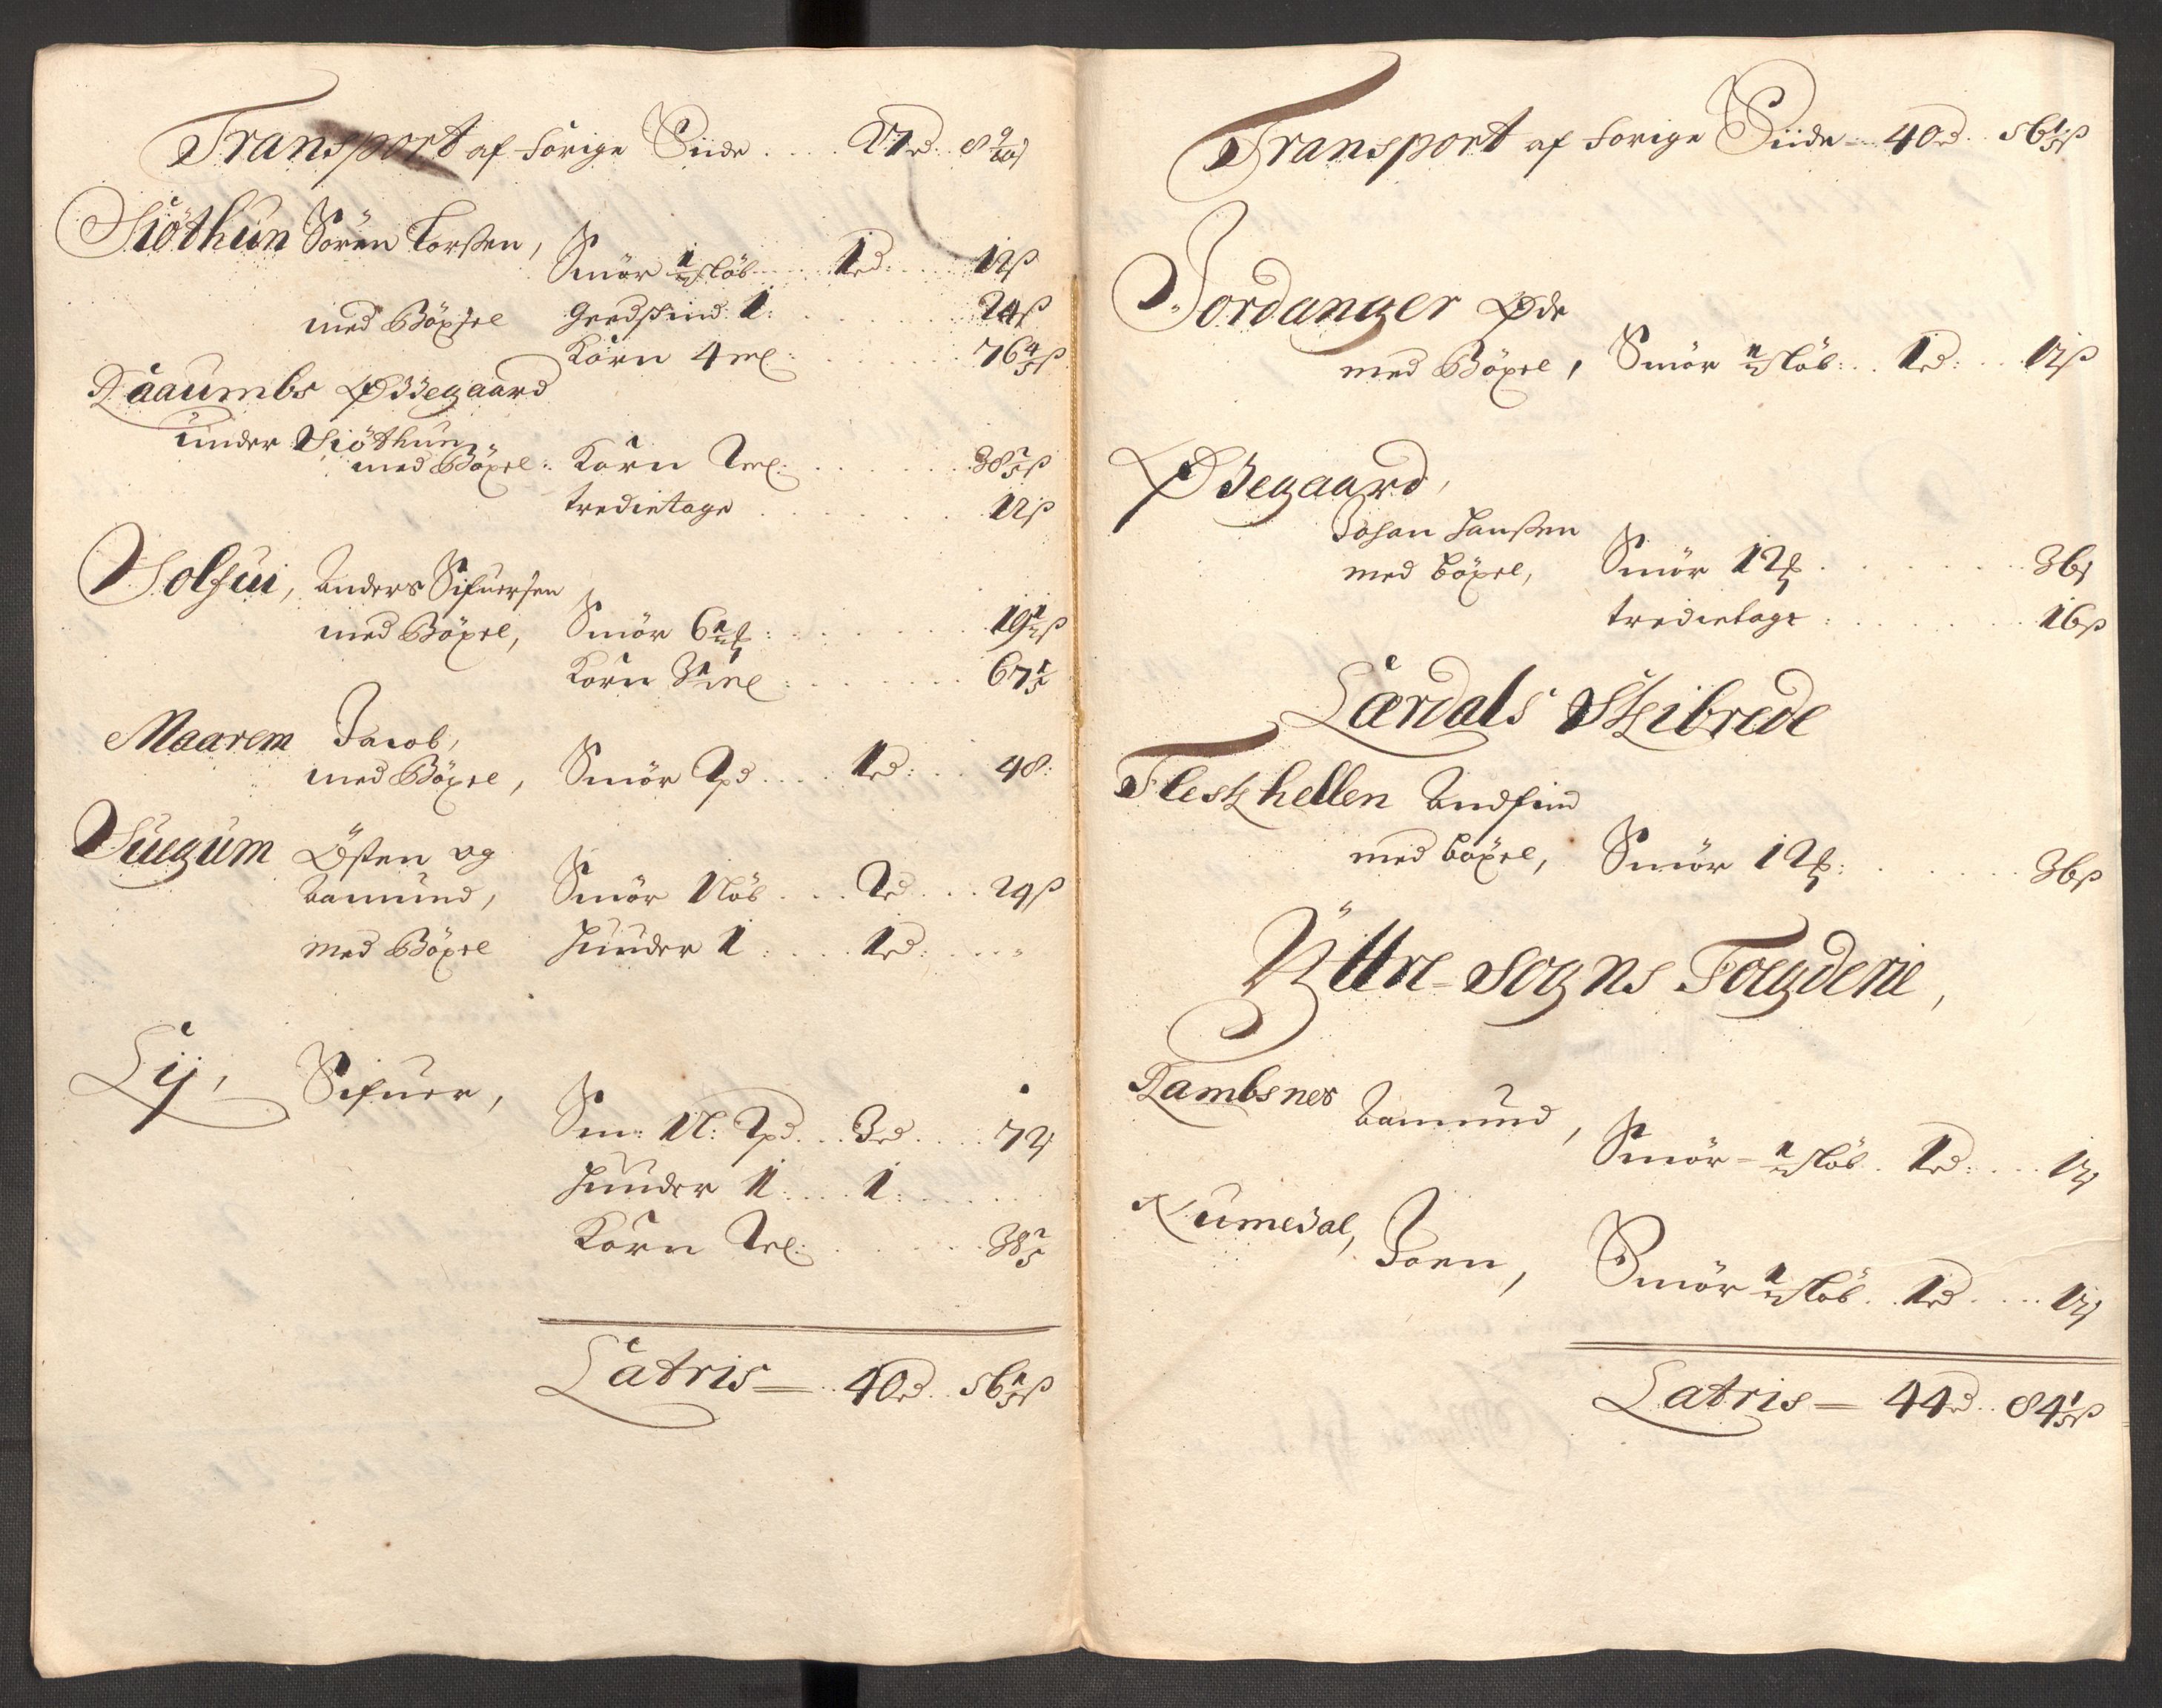 Transport af forige Siide .... 27rd. 8 9/10 ß
Siöthun Sören Larßen,
Smör 1/2 Löb .... 1rd: ... 12ß
med Böxsel Giedskind: 1: ... 24ß
Korn 4 ml: ... 76 4/5 ß
Raaumbs ØDegaard
under Siöthun
med Böxel: Korn 2ml: ... 38 2/5 ß
tredietage ... 12ß
Solsui, Anders Sifuersen
med Böxel, Smör 6 1/2 ... 19 1/2 ß
Korn 3 1/2 ml ... 67 1/5
Maarem Jacob,
med Böxel, Smör 2pd .... 1rd: ... 48:
Suegum Östen og
Aamund, Smör 1 Löb ... 2rd ... 24ß
med Böxel Huuder 1: ... 1rd: ...
Ly, Sifuer,
Sm: 1L: 2pd ... 3rd .... 72
Huuder 1: ... 1: ...
Korn 2ml: ... 38 2/5
Latris = .. 40rd .. 56 1/5 ß
Transport af forige Siide = 40rd .. 56 1/5 ß
Jordanger Øde
med Böxel, Smör 1/2 Löb: .. 1rd: ... 12ß
ØDegaard,
Johan Hanßen
med böxel, Smör 12 ... 36
tredietage: ... 16ß
Lærdals Skibrede
Fleskhellen Andfind
med böxel, Smör 12: ... 36ß
Ÿttre-Sogns Foegderie,
Rambsnes Aamund,
Smör - 1/2 Löb . 1rd: ... 12
Numedal, Joen, Smör 1/2 Löb . 1rd .... 12
Latris = 44rd .. 84 1/5 ß